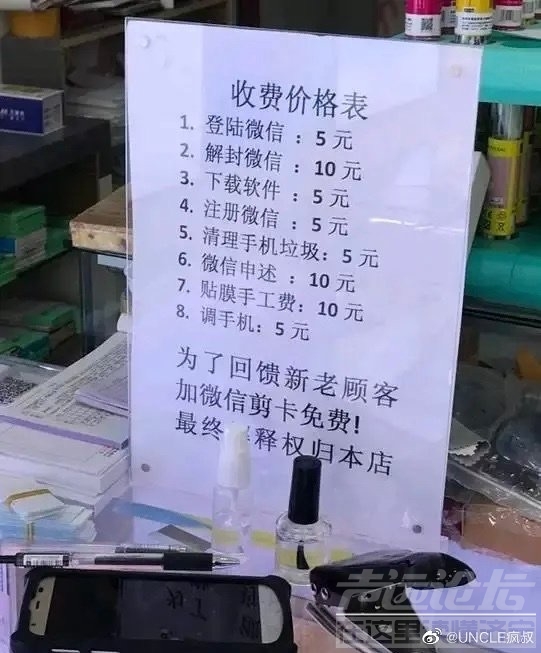 收费价格表
1. 登陆微信：5 元
2. 解封微信：10 元
3. 下载软件：5 元
4. 注册微信：5 元
5. 清理手机垃圾：5 元
6. 微信申述：10 元
7. 贴膜手工费：10 元
8. 调手机：5 元
为了回馈新老顾客
加微信剪卡免费！
最终 释权归本店
声远论坛
在这里读懂济宁
@UNCLE疯叔